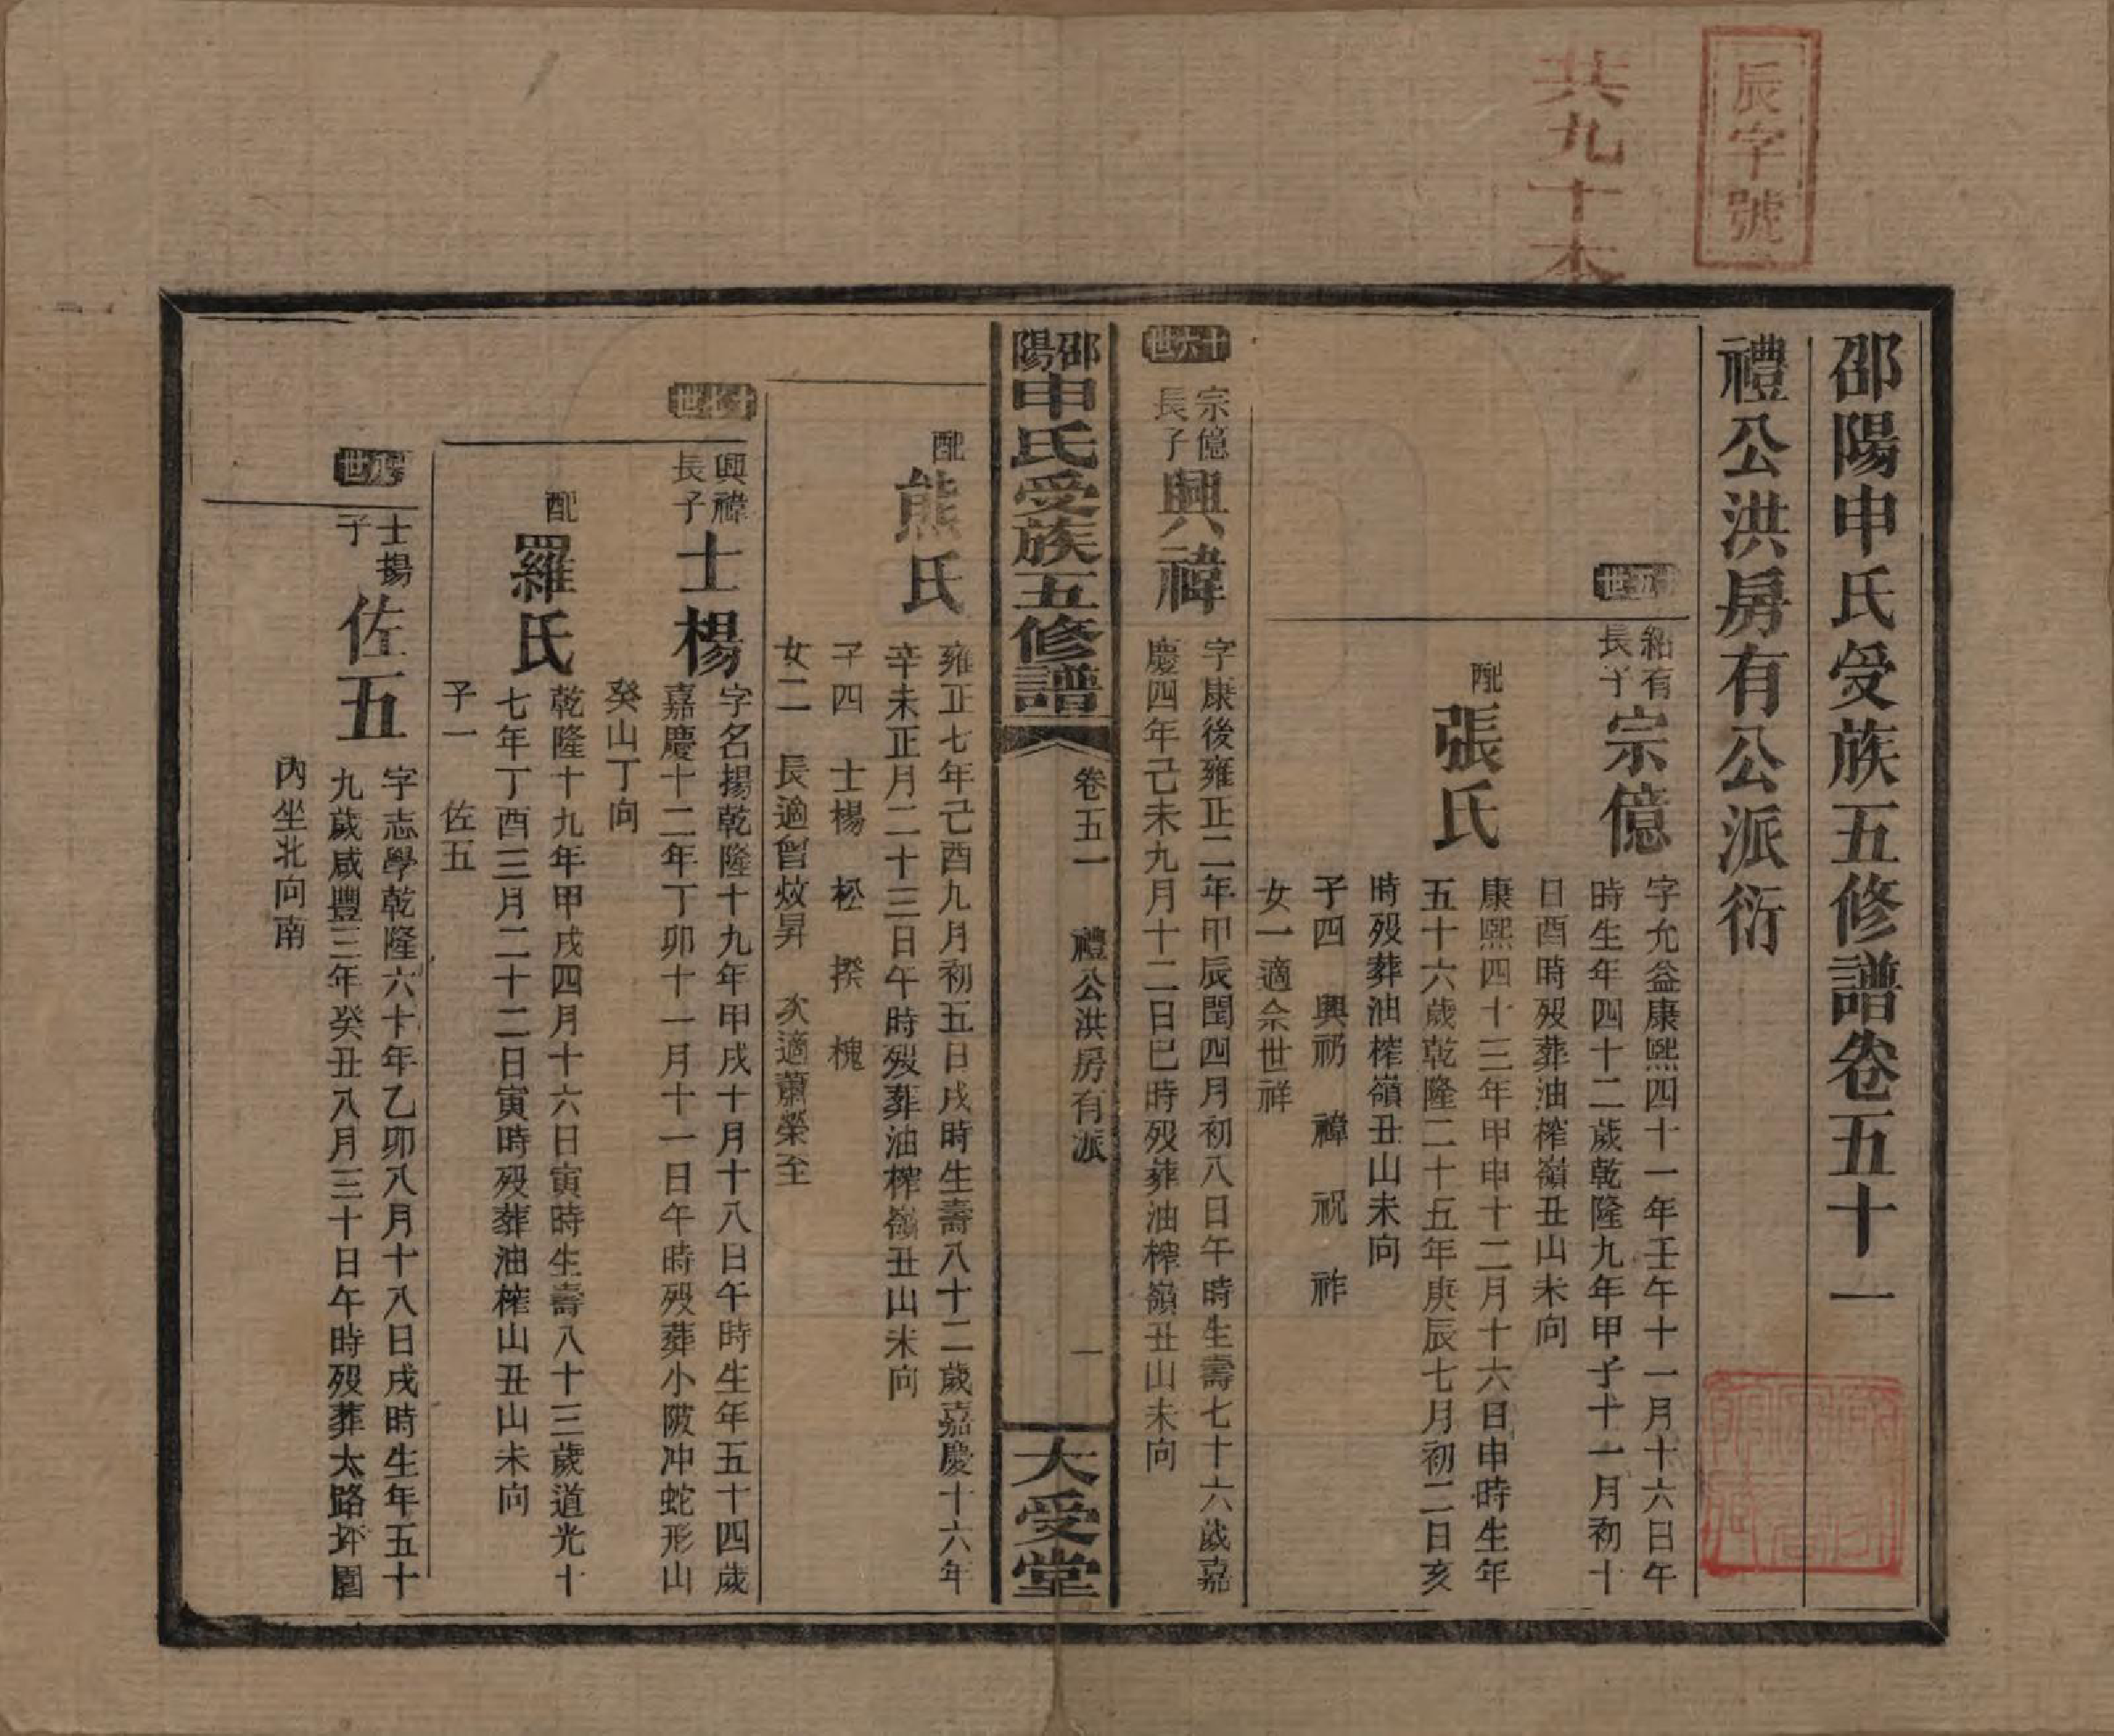 辰字號
共九十本
邵陽申氏受族五修譜卷五十一
禮公洪房有公派衍
十五世
紹有長子
宗億
字允益康熙四十一年壬午十一月十六日午
時生年四十二歲乾隆九年甲子十一月初十
日酉時歿葬油榨嶺丑山未向
配張氏
康熙四十三年甲申十二月十六日申時生年
五十六歲乾隆二十五年庚辰七月初二日亥
時歿葬油榨嶺丑山未向
子四 興礽 禕 祝 祚
女一適佘世祥
十六世
宗億長子
興禕
字康後雍正二年甲辰閏四月初八日午時生壽七十六歲嘉
慶四年己未九月十二日巳時歿葬油榨嶺丑山未向
邵陽申氏受族五修譜
卷五一 禮公洪房有派
一
大受堂
配熊氏
雍正七年己酉九月初五日戌時生壽八十二歲嘉慶十六年
辛未正月二十三日午時歿葬油榨嶺丑山未向
子四 士楊 松 揆 槐
女二 長適曾效昇 次適蕭榮至
十七世
興禕長子
士楊
字名揚乾隆十九年甲戌十月十八日午時生年五十四歲
嘉慶十二年丁卯十一月十一日午時歿葬小陂冲蛇形山
癸山丁向
配羅氏
乾隆十九年甲戌四月十六日寅時生壽八十三歲道光十
七年丁酉三月二十二日寅時歿葬油榨山丑山未向
子一 佐五
十八世
士揚子
佐五
字志學乾隆六十年乙卯八月十八日戌時生年五十
九歲咸豐三年癸丑八月三十日午時歿葬大路坪園
內坐北向南